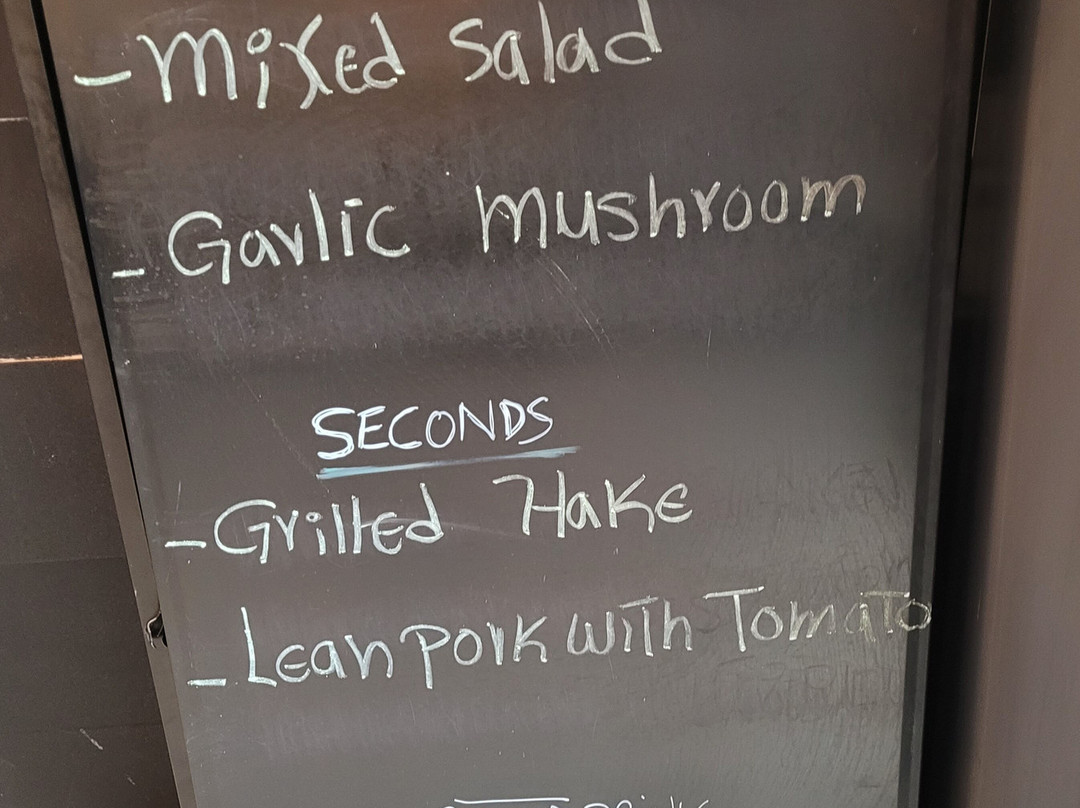 - Mixed salad
- Garlic mushroom
SECONDS
- Grilled Hake
- Lean pork with Tomato